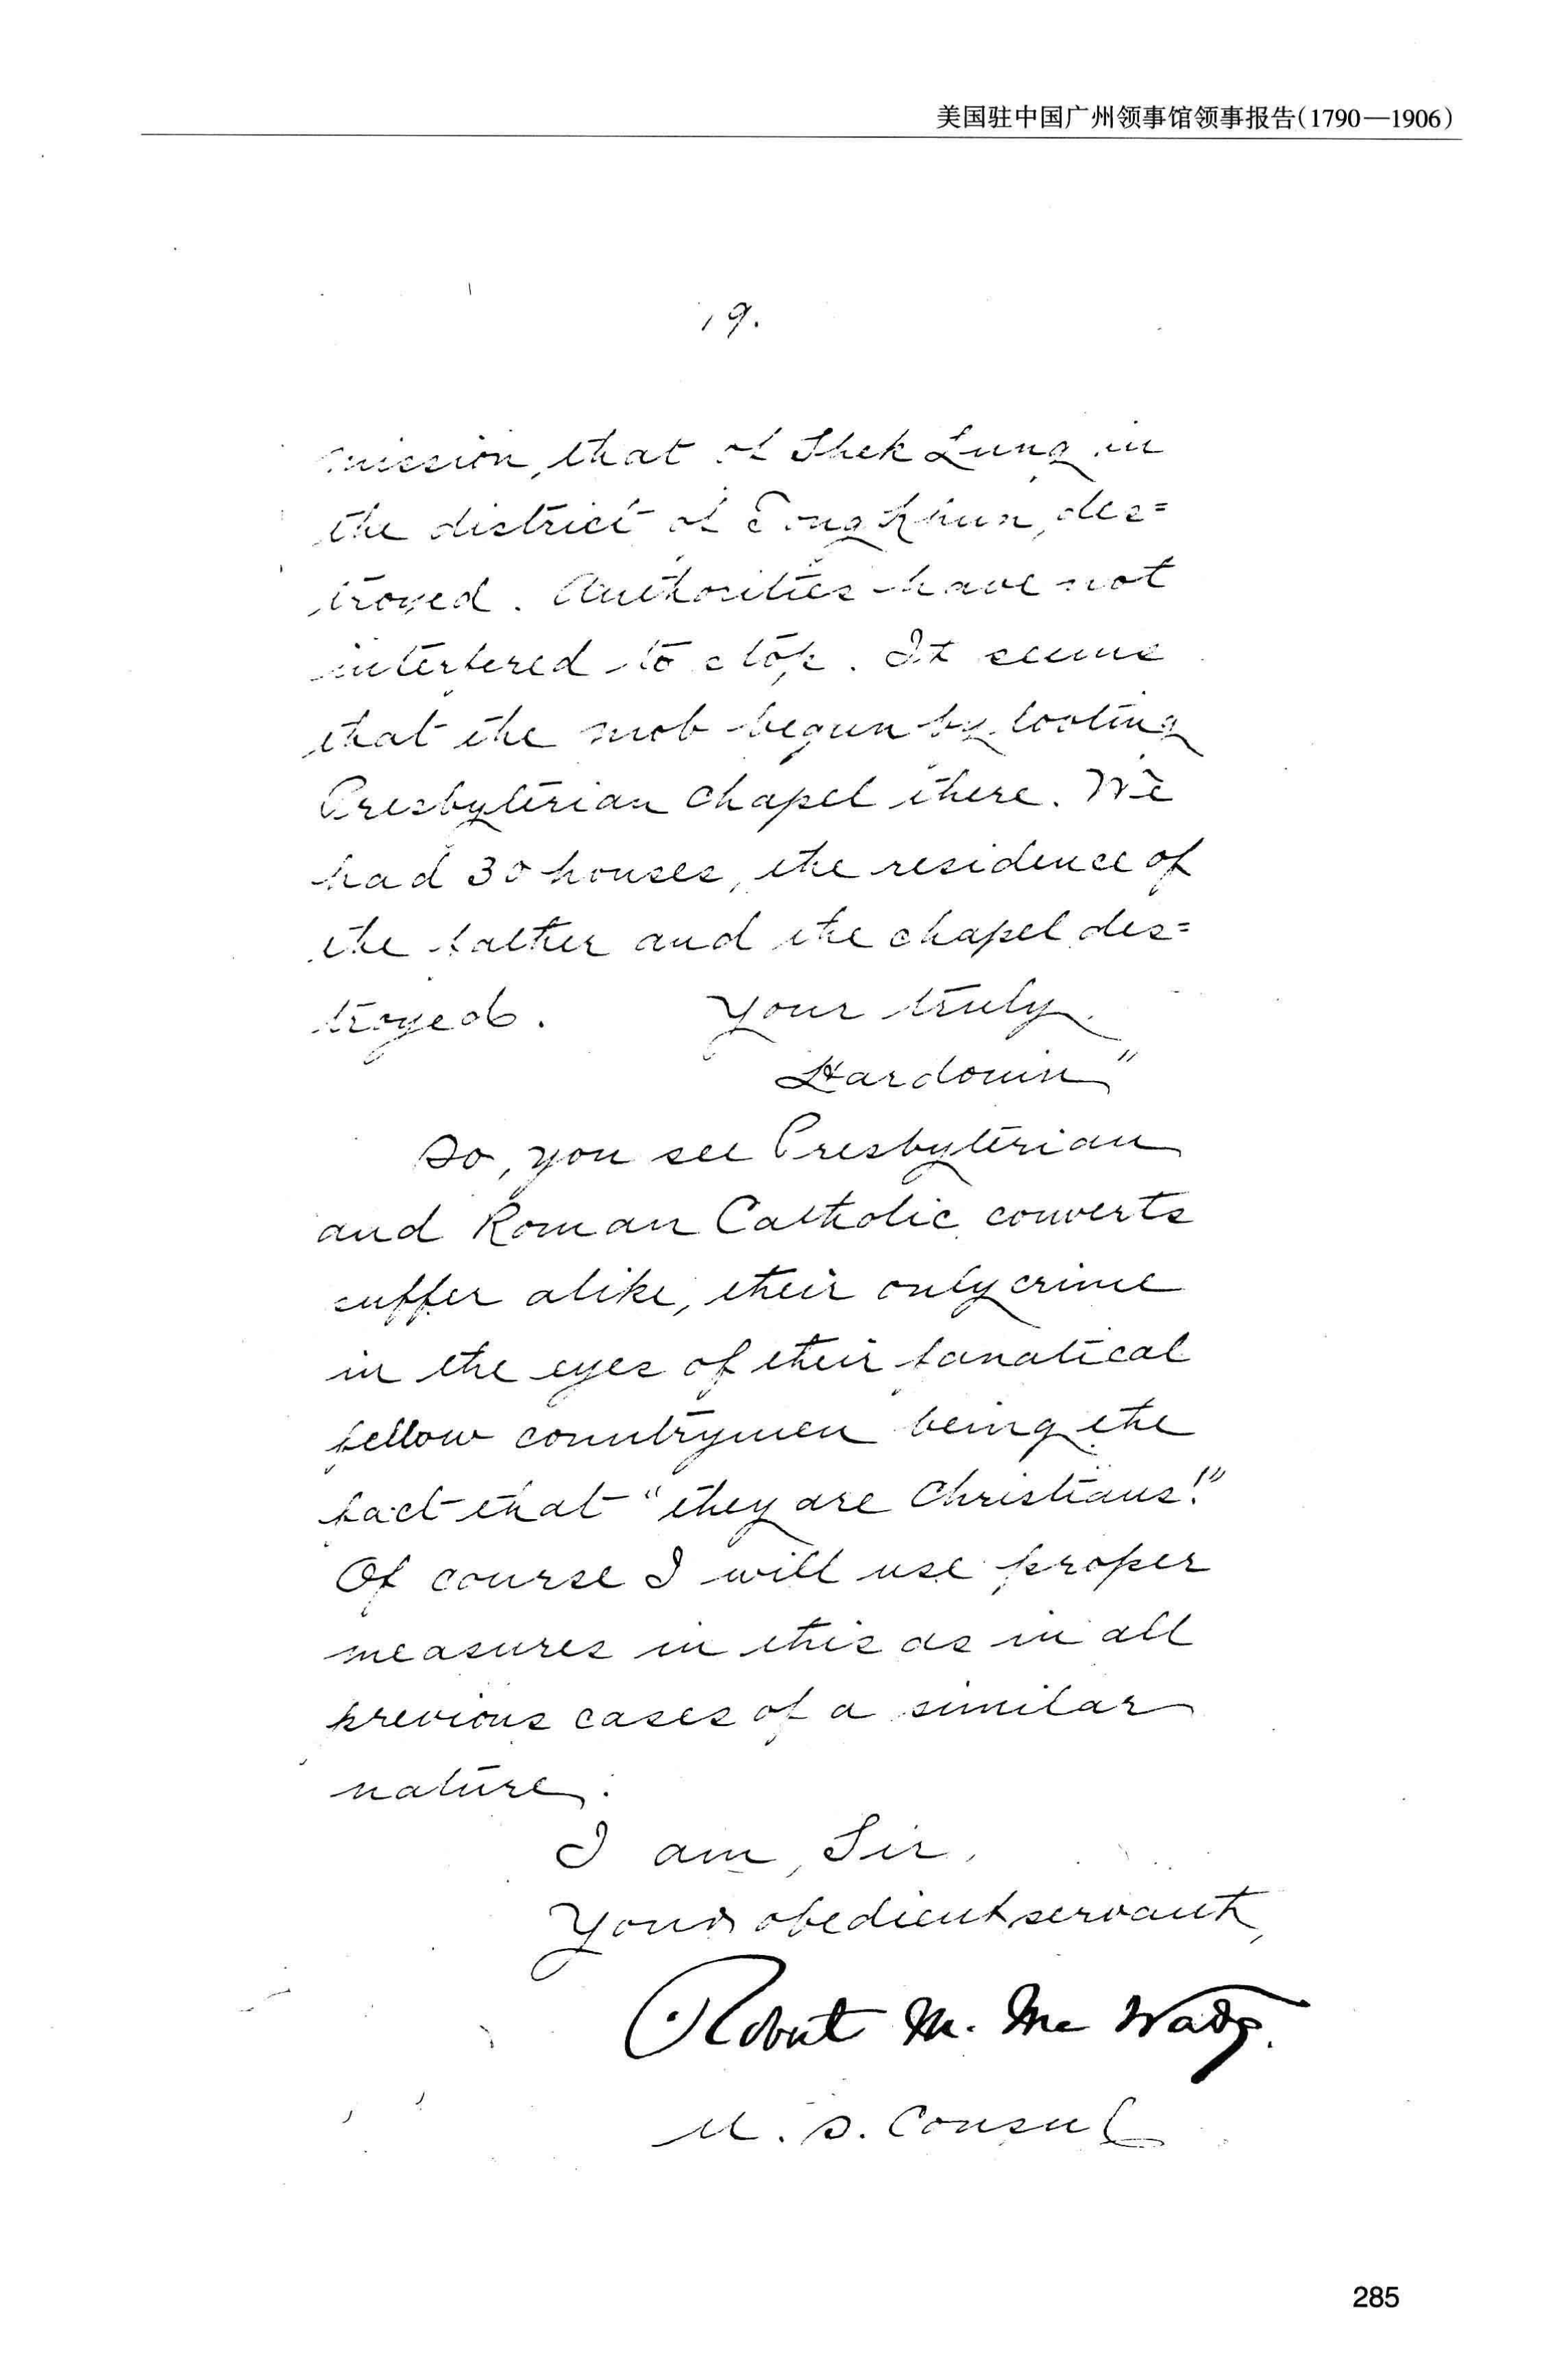 美国驻中国广州领事馆领事报告(1790—1906)
19.
mission, that of Shek Lung in
the district of Tong Khun, des=
troyed. Authorities have not
interfered to stop. It seems
that the mob begun by looting
Presbyterian Chapel there. We
had 30 houses, the residence of
the father and the chapel des=
troyed. Your truly
Hardouin"
So, you see Presbyterian
and Roman Catholic converts
suffer alike, their only crime
in the eyes of their fanatical
fellow countrymen being the
fact that "they are Christians!"
Of course I will use proper
measures in this as in all
previous cases of a similar
nature.
I am, Sir,
Your obedient servant,
Robert M. McWade.
U. S. Consul
285